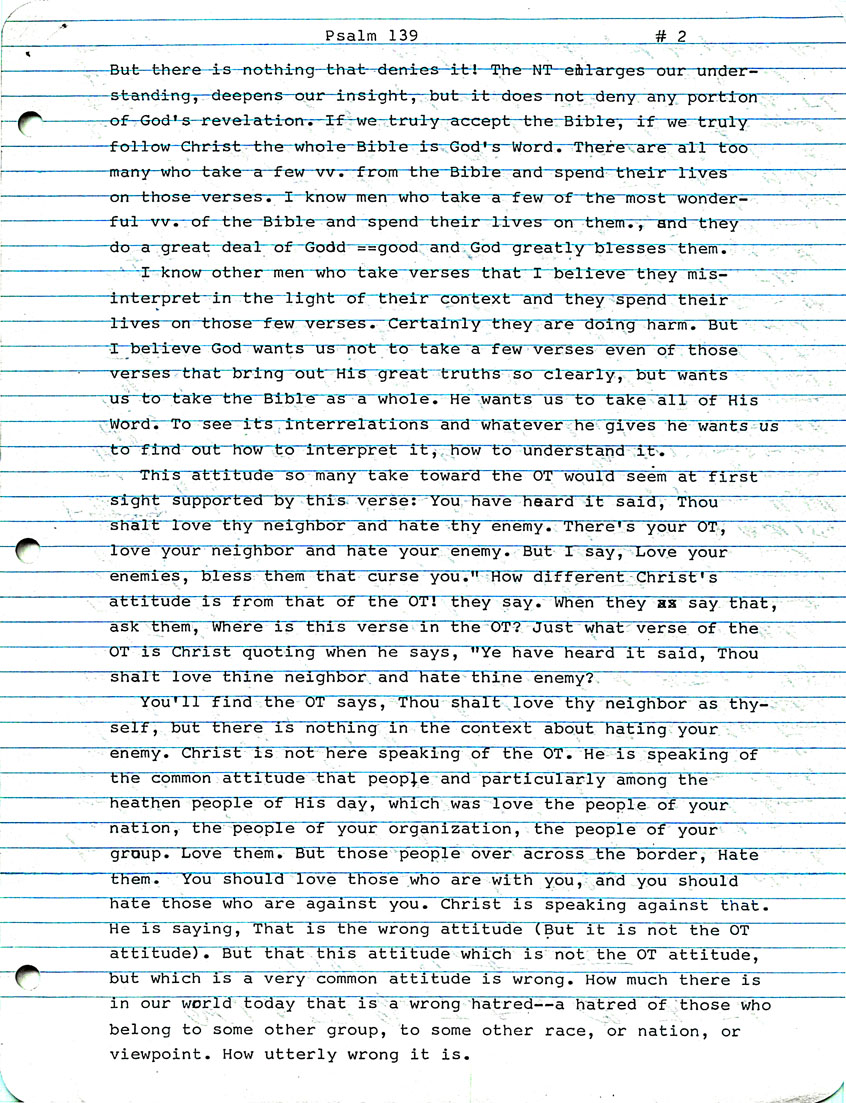 Psalm 139 # 2
But there is nothing that denies it! The NT enlarges our under-
standing, deepens our insight, but it does not deny any portion
of God's revelation. If we truly accept the Bible, if we truly
follow Christ the whole Bible is God's Word. There are all too
many who take a few vv. from the Bible and spend their lives
on those verses. I know men who take a few of the most wonder-
ful vv. of the Bible and spend their lives on them., and they
do a great deal of Godd ==good and God greatly blesses them.
I know other men who take verses that I believe they mis-
interpret in the light of their context and they spend their
lives on those few verses. Certainly they are doing harm. But
I believe God wants us not to take a few verses even of those
verses that bring out His great truths so clearly, but wants
us to take the Bible as a whole. He wants us to take all of His
Word. To see its interrelations and whatever he gives he wants us
to find out how to interpret it, how to understand it.
This attitude so many take toward the OT would seem at first
sight supported by this verse: You have heard it said, Thou
shalt love thy neighbor and hate thy enemy. There's your OT,
love your neighbor and hate your enemy. But I say, Love your
enemies, bless them that curse you." How different Christ's
attitude is from that of the OT! they say. When they say that,
ask them, Where is this verse in the OT? Just what verse of the
OT is Christ quoting when he says, "Ye have heard it said, Thou
shalt love thine neighbor and hate thine enemy?
You'll find the OT says, Thou shalt love thy neighbor as thy-
self, but there is nothing in the context about hating your
enemy. Christ is not here speaking of the OT. He is speaking of
the common attitude that people and particularly among the
heathen people of His day, which was love the people of your
nation, the people of your organization, the people of your
group. Love them. But those people over across the border, Hate
them. You should love those who are with you, and you should
hate those who are against you. Christ is speaking against that.
He is saying, That is the wrong attitude (But it is not the OT
attitude). But that this attitude which is not the OT attitude,
but which is a very common attitude is wrong. How much there is
in our world today that is a wrong hatred--a hatred of those who
belong to some other group, to some other race, or nation, or
viewpoint. How utterly wrong it is.